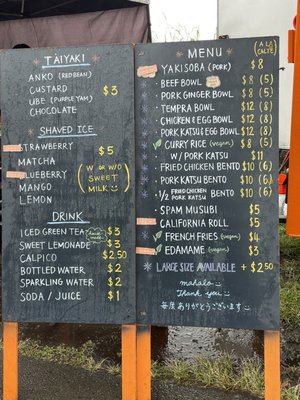 TAIYAKI
ANKO (RED BEAN)
CUSTARD
UBE (PURPLE YAM)
CHOCOLATE
$3
SHAVED ICE
STRAWBERRY
MATCHA
BLUEBERRY
MANGO
LEMON
$5
(W OR W/O
SWEET
MILK)
DRINK
ICED GREEN TEA $3
SWEET LEMONADE $3
CALPICO $2.50
BOTTLED WATER $2
SPARKLING WATER $2
SODA / JUICE $1
MENU (A LA CALTE)
YAKISOBA (PORK) $8
BEEF BOWL $8 (5)
PORK GINGER BOWL $8 (5)
TEMPRA BOWL $12 (8)
CHICKEN & EGG BOWL $12 (8)
PORK KATSU & EGG BOWL $12 (8)
CURRY RICE (vegan) $8 (5)
W/ PORK KATSU $11
FRIED CHICKEN BENTO $10 (6)
PORK KATSU BENTO $10 (6)
1/2 FRIED CHICKEN PORK KATSU BENTO $10 (6)
SPAM MUSUBI $5
CALIFORNIA ROLL $5
FRENCH FRIES (vegan) $4
EDAMAME (vegan) $3
LARGE SIZE AVAILABLE +$2.50
mahalo
Thank you
毎度ありがとうございます